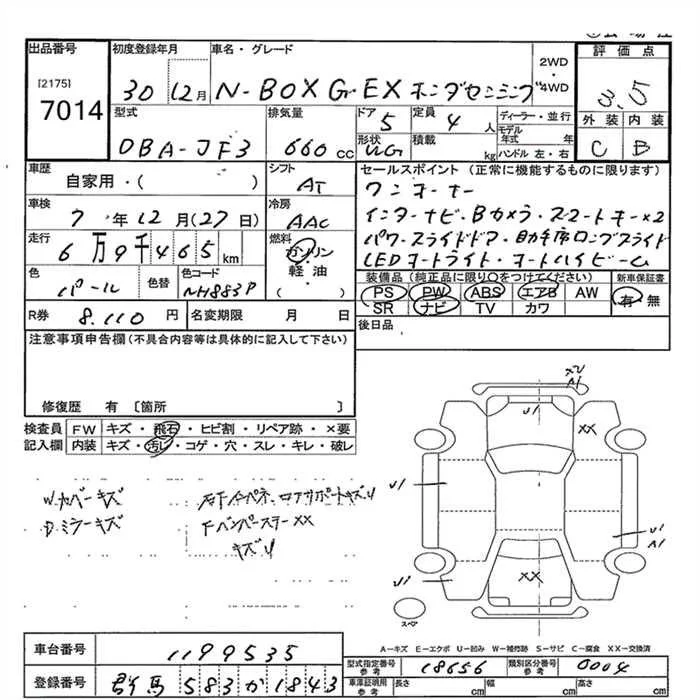 出品番号 初度登録年月 車名・グレード 2WD・4WD 評価点
[2175]
7014
30 12月 N-BOX G・EX ホンダセンシング
3.5
型式 排気量 ドア 定員 ディーラー・並行 外装 内装
DBA-JF3 660cc 5 4人 モデル年式 年
形状 積載 kg ハンドル 左・右 C B
WG
車歴 シフト セールスポイント (正常に機能するものに限ります)
自家用・( ) AT ワンオーナー
車検 冷房 インターナビ・Bカメラ・スマートキー×2
7年12月(27日) AAC
走行 燃料 パワースライドドア・助手席ロングスライド
6万9千465km ガソリン・軽油( ) LEDオートライト・オートハイビーム
色 色替 色コード 装備品 (純正品に限り○をつけてください) 新車保証書
パール NH883P PS PW ABS エアB AW 有・無
SR ナビ TV カワ
R券 8,110円 名変期限 月 日 後日品
注意事項申告欄 (不具合内容等は具体的に記入して下さい)
修復歴 有 〔箇所 〕
検査員記入欄 FW キズ・飛石・ヒビ割・リペア跡・×要
内装 キズ・汚れ・コゲ・穴・スレ・キレ・破レ
Wカバーキズ
Dミラーキズ
右Fインペネ、ロアサポートキズU
FバンパーステーXX
キズU
XU
A1
U1
XX
U1
U1
A1
XX
U1
スペア
A-キズ E-エクボ U-凹み W-補修跡 S-サビ C-腐食 XX-交換済
車台番号 1199535
型式指定番号 参考 18656 類別区分番号 参考 0004
登録番号 群馬 583 か 1843
車庫証明用 参考 長さ cm 幅 cm 高さ cm